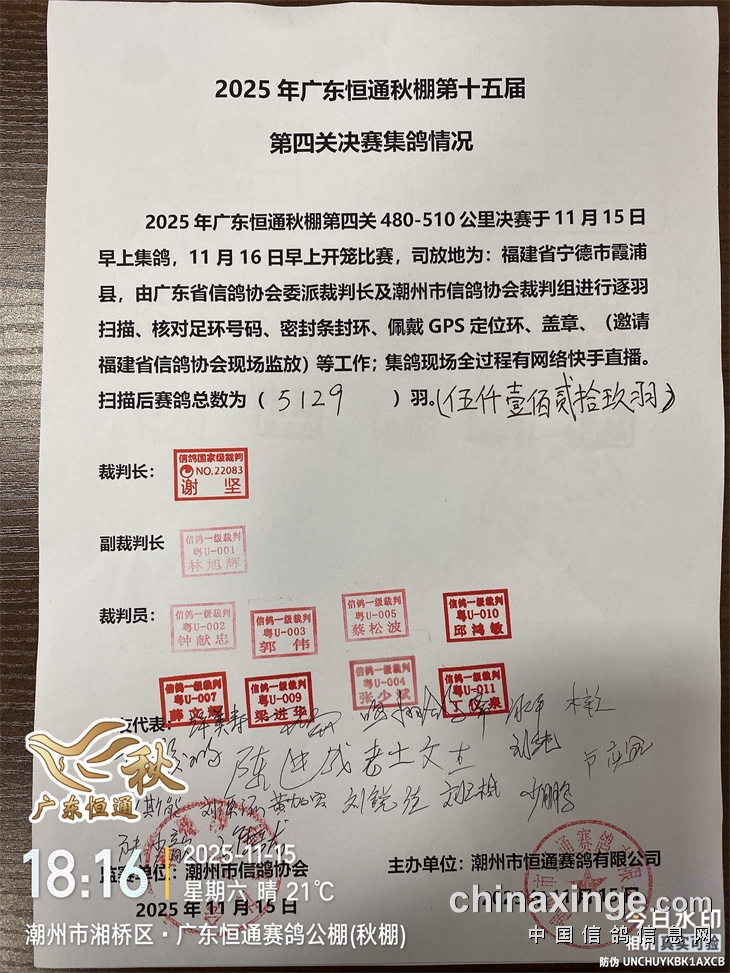 2025年广东恒通秋棚第十五届
第四关决赛集鸽情况
2025年广东恒通秋棚第四关480-510公里决赛于11月15日
早上集鸽，11月16日早上开笼比赛，司放地为：福建省宁德市霞浦
县，由广东省信鸽协会委派裁判长及潮州市信鸽协会裁判组进行逐羽
扫描、核对足环号码、密封条封环、佩戴GPS定位环、盖章、（邀请
福建省信鸽协会现场监放）等工作；集鸽现场全过程有网络快手直播。
扫描后赛鸽总数为（ 5129 ）羽。(伍仟壹佰贰拾玖羽)
裁判长：
信鸽国家级裁判
NO.22083
谢 坚
副裁判长
信鸽一级裁判
粤U-001
林旭辉
裁判员：
信鸽一级裁判
粤U-002
钟献忠
信鸽一级裁判
粤U-003
郭 伟
信鸽一级裁判
粤U-005
蔡松波
信鸽一级裁判
粤U-010
邱鸿敏
信鸽一级裁判
粤U-007
信鸽一级裁判
粤U-009
梁进华
信鸽一级裁判
粤U-004
张少斌
信鸽一级裁判
粤U-011
丁仪泉
友代表：
秋
广东恒通
监赛单位：潮州市信鸽协会
主办单位：潮州市恒通赛鸽有限公司
2025年11月15日
18:16
2025-11-15
星期六 晴 21℃
潮州市湘桥区·广东恒通赛鸽公棚(秋棚)
chinaxinge.com
中国信鸽信息网
今日水印
相机 真实可验
防伪 UNCHUYKBK1AXCB